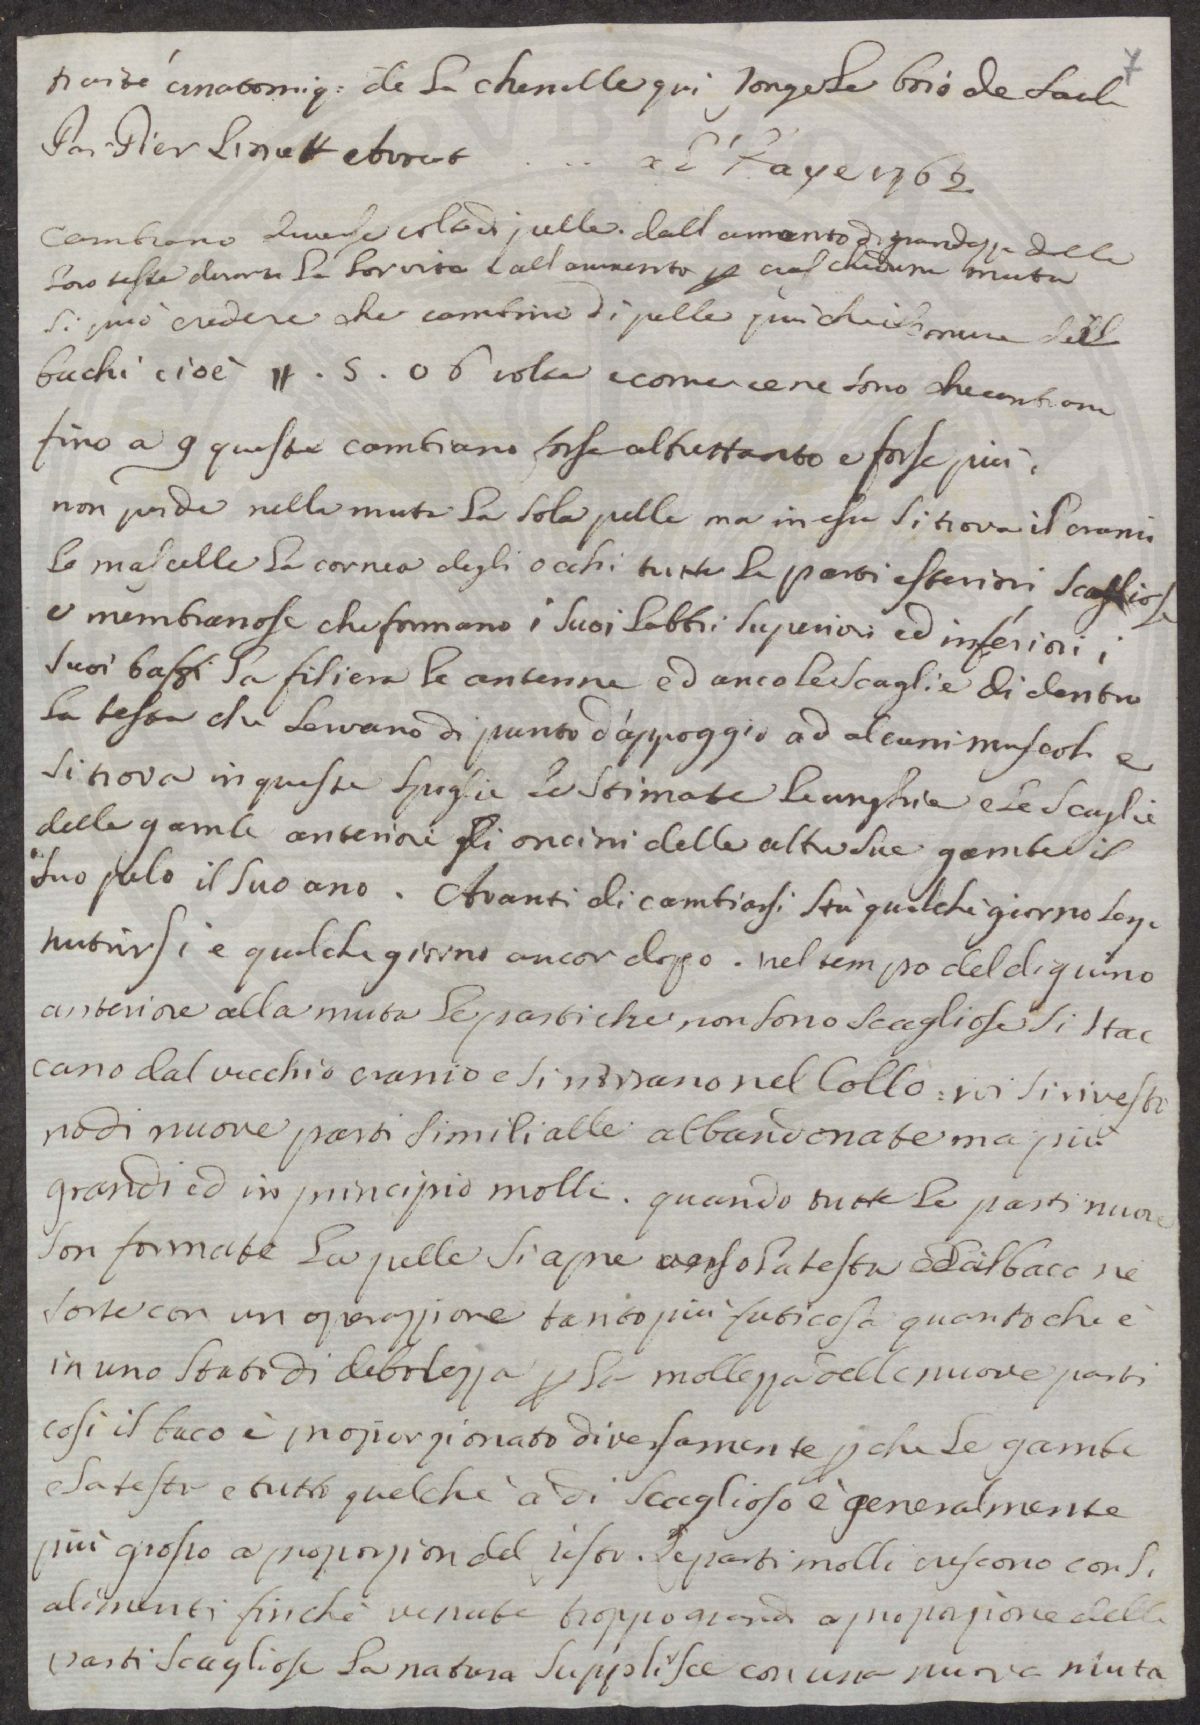 7
traité anatomiq: de La chenille qui ronge Le bois de Saule
Par Pier Linett Avocat .... a L'Haye 1762
Cambiano diverse volte di pelle. dall aumento di grandezza della
loro testa durante La lor vita e all aumento p ciascheduna muta
Si può credere che cambino di pelle più che il comune dell
bachi cioè . 5. o 6 volte e come ce ne sono che cambiano
fino a 9 queste cambiano forse altrettanto e forse più.
non perde nella muta La Sola pelle ma in essa Si trova il cranio
Le mascelle La cornea degli occhi tutte Le parti esteriori Scagliose
e membranose che formano i Suoi Labbri Superiori ed inferiori i
Suoi baffi La filiera Le antenne ed anco Le Scaglie di dentro
La testa che Servano di punto d'appoggio ad alcuni muscoli e
Si trova in queste Spoglie Le Stimate Le unghie e Le Scaglie
delle gambe anteriori gli oncini delle altre Sue gambe il
Suo pelo il Suo ano. Avanti di cambiarsi Stà qualche giorno Senza
nutrirsi e qualche giorno ancor dopo. nel tempo del digiuno
anteriore alla muta Le parti che non Sono Scagliose Si Stac
cano dal vecchio cranio e Si ritirano nel Collo: ivi Si rivesto
no di nuove parti Simili alle abbandonate ma più
grandi ed in principio molli. quando tutte Le parti nuove
Son formate La pelle Si apre verso La testa ed il baco ne
Sorte con un operazzione tanto più faticosa quanto che è
in uno Stato di debolezza p La mollezza delle nuove parti
così il baco è proporzionato diversamente pche Le gambe
e La testa e tutto quel che à di Scaglioso è generalmente
più grosso a proporzion del resto. Le parti molli crescono con Li
alimenti finchè venute troppo grandi a proporzione delle
parti Scagliose La natura Supplisce con una nuova muta